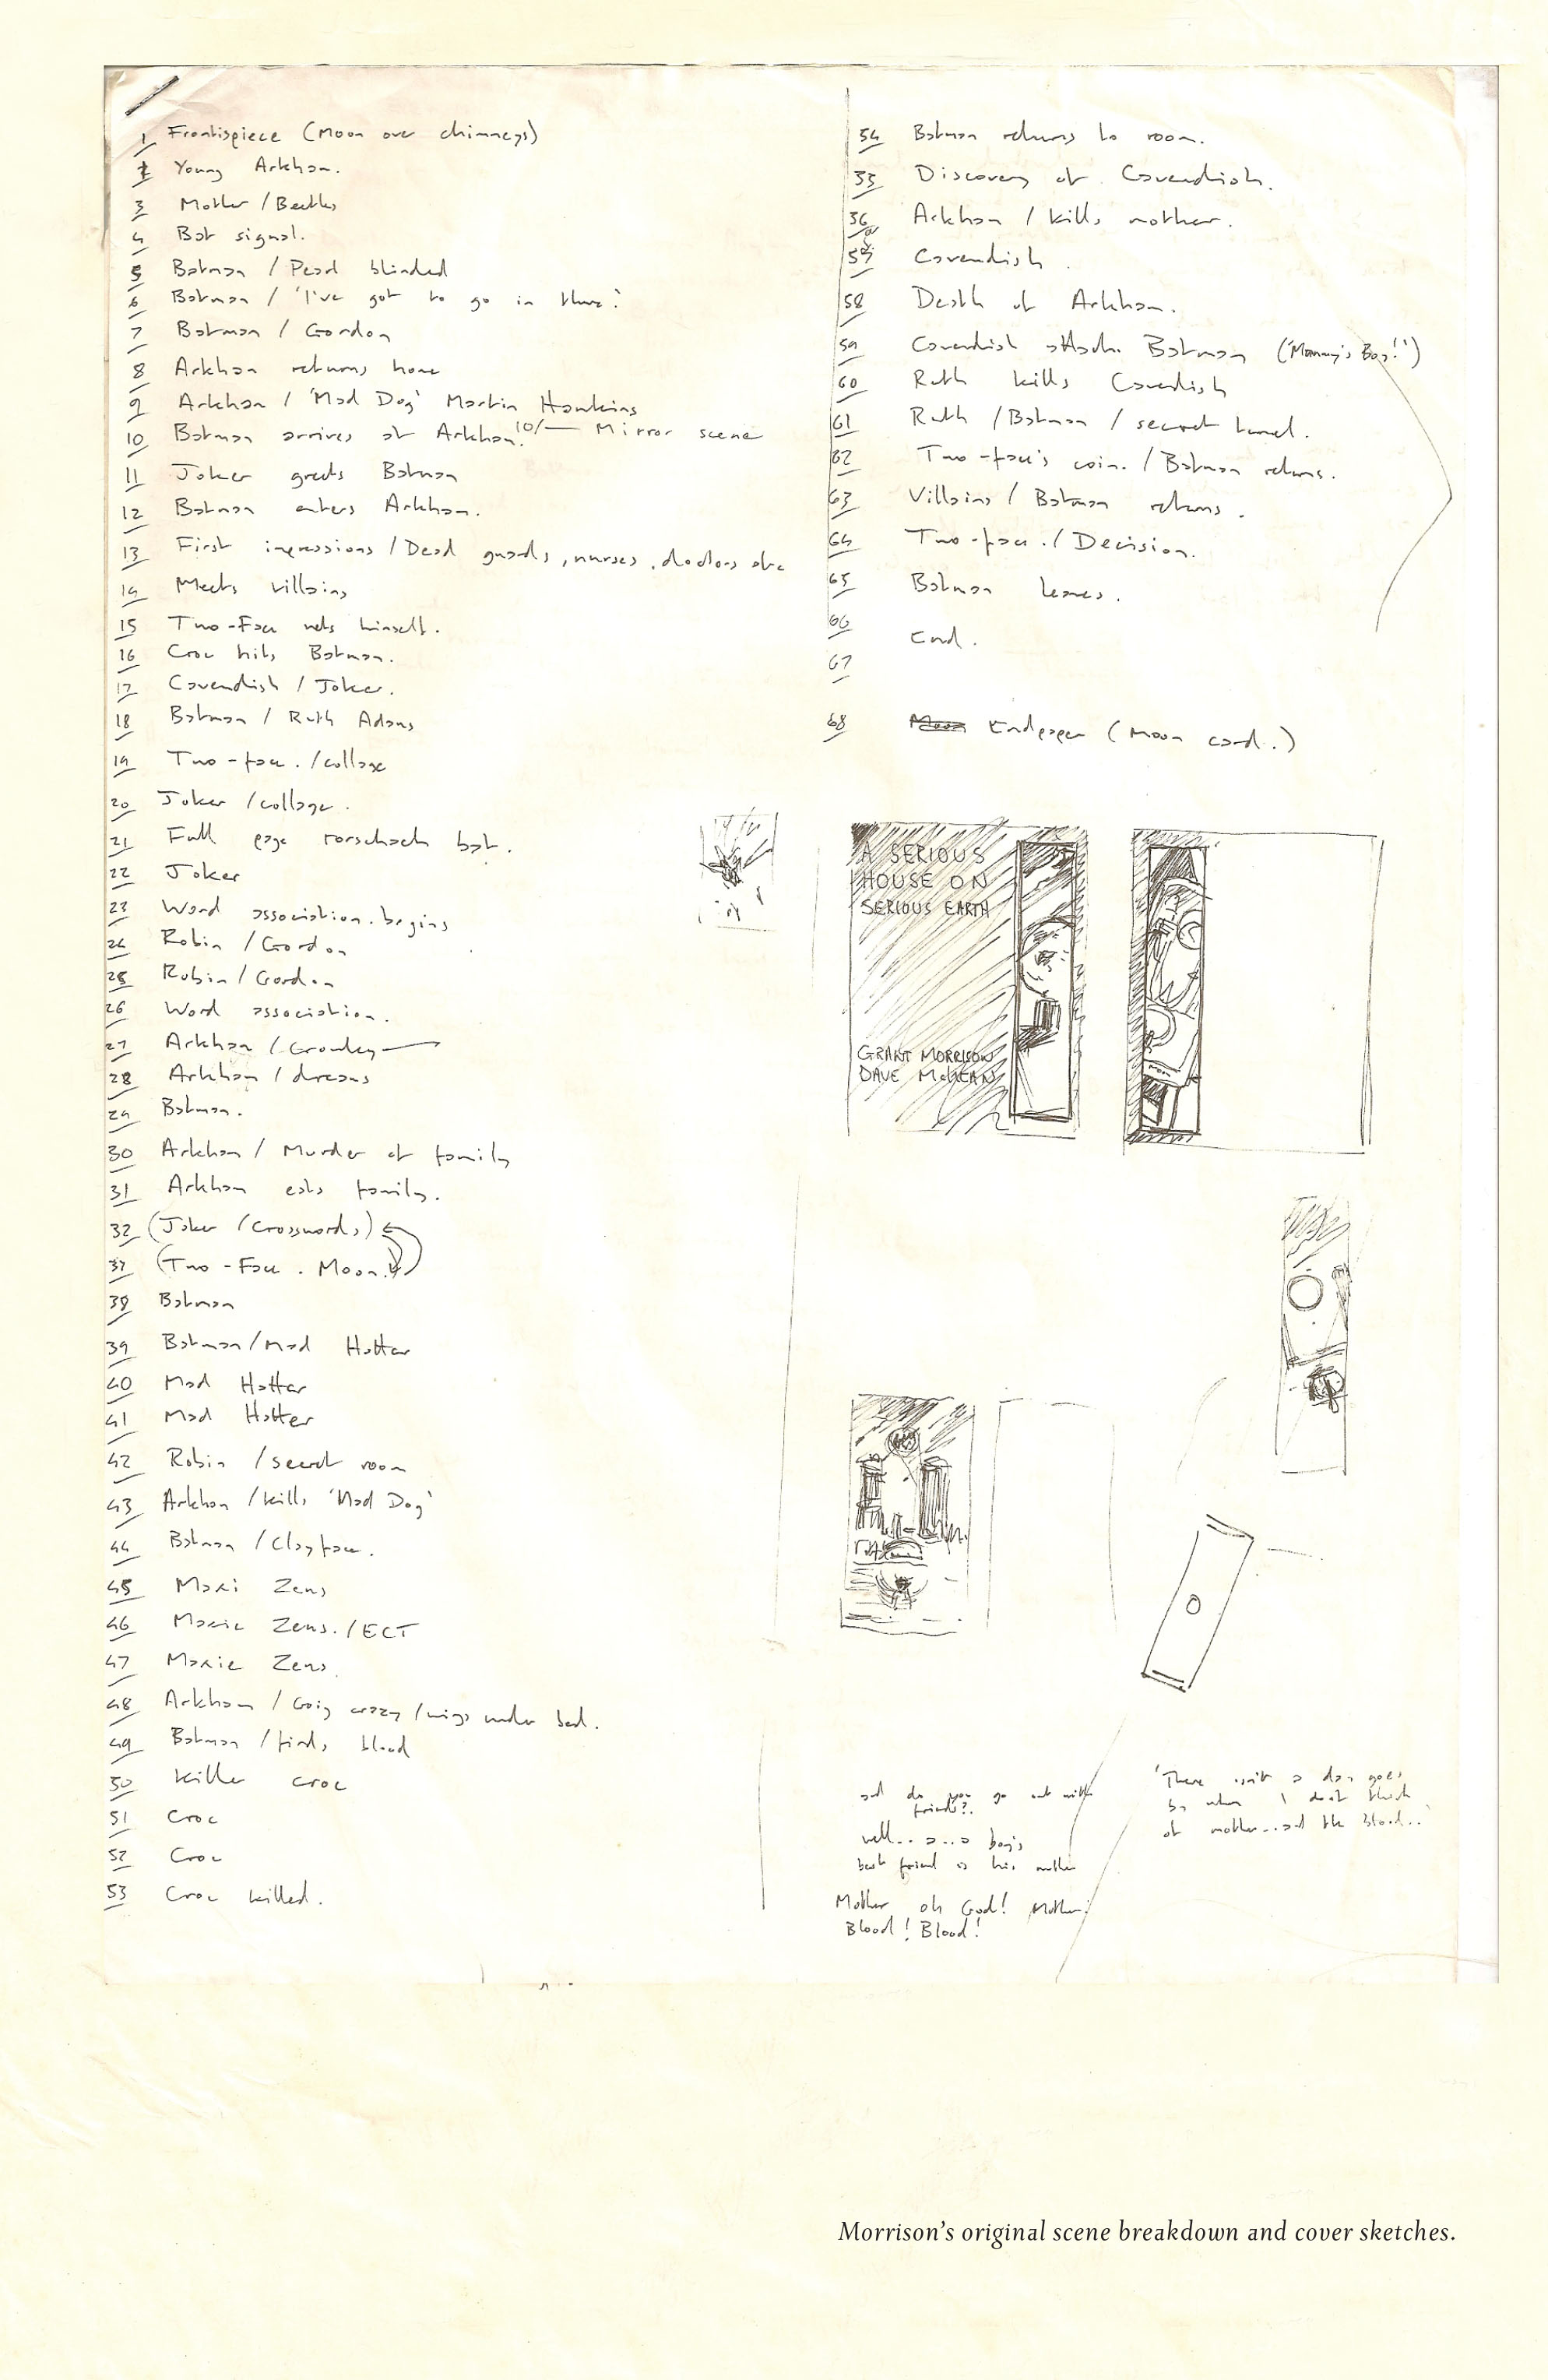 1 Frontispiece (Moon over chimneys)
2 Young Arkham.
3 Mother / Beetles
4 Bat signal.
5 Batman / Pearl blinded
6 Batman / 'I've got to go in there'.
7 Batman / Gordon
8 Arkham returns home
9 Arkham / 'Mad Dog' Martin Hawkins
10 Batman arrives at Arkham. 10/— Mirror scene
11 Joker greets Batman
12 Batman enters Arkham.
13 First impressions / Dead guards, nurses, doctors etc
14 Meets villains
15 Two-Face wets himself.
16 Croc hits Batman.
17 Cavendish / Joker.
18 Batman / Ruth Adams
19 Two-face. / collage
20 Joker / collage.
21 Full page rorschach bat.
22 Joker
23 Word association begins
24 Robin / Gordon
25 Robin / Gordon
26 Word association.
27 Arkham / Crowley
28 Arkham / dreams
29 Batman.
30 Arkham / Murder of family
31 Arkham eats family.
32 (Joker / Crosswords)
37 (Two-Face. Moon.)
38 Batman
39 Batman / Mad Hatter
40 Mad Hatter
41 Mad Hatter
42 Robin / secret room
43 Arkham / kills 'Mad Dog'
44 Batman / Clayface.
45 Maxi Zeus
46 Maxie Zeus. / ECT
47 Maxie Zeus.
48 Arkham / Goig crazy / wings under bed.
49 Batman / finds blood
50 Killer Croc
51 Croc
52 Croc
53 Croc killed.
54 Batman returns to room.
55 Discovery of Cavendish.
56 Arkham / kills mother.
57 Cavendish.
58 Death of Arkham.
59 Cavendish attacks Batman ('Mommy's Boy!')
60 Ruth kills Cavendish
61 Ruth / Batman / secret tunnel.
62 Two-face's coin. / Batman returns.
63 Villains / Batman returns.
64 Two-face. / Decision.
65 Batman leaves.
66 End.
67
68 Moon Endpaper (Moon card.)
A SERIOUS
HOUSE ON
SERIOUS EARTH
GRANT MORRISON
DAVE McKEAN
and do you go out with
friends?.
well.. a... a boy's
best friend is his mother
Mother oh God! Mother!
Blood! Blood!
'There isn't a day goes
by when I don't think
of mother...and the blood...'
Morrison's original scene breakdown and cover sketches.